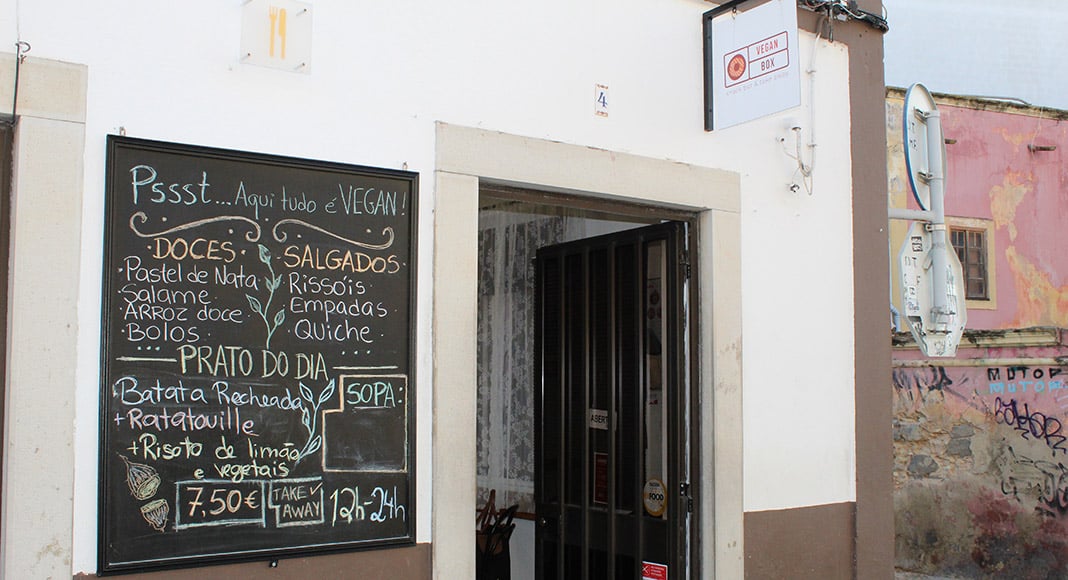 4
VEGAN
BOX
Pssst... Aqui tudo é VEGAN!
DOCES
Pastel de Nata
Salame
ARROZ doce
BOLOS
SALGADOS
Rissóis
Empadas
Quiche
PRATO DO DIA
Batata Recheada
+ Ratatouille
+ Risoto de limão
e vegetais
SOPA:
7,50€
TAKE
AWAY
12h-24h
ABERT
FOOD
MUTOP
MUTOP